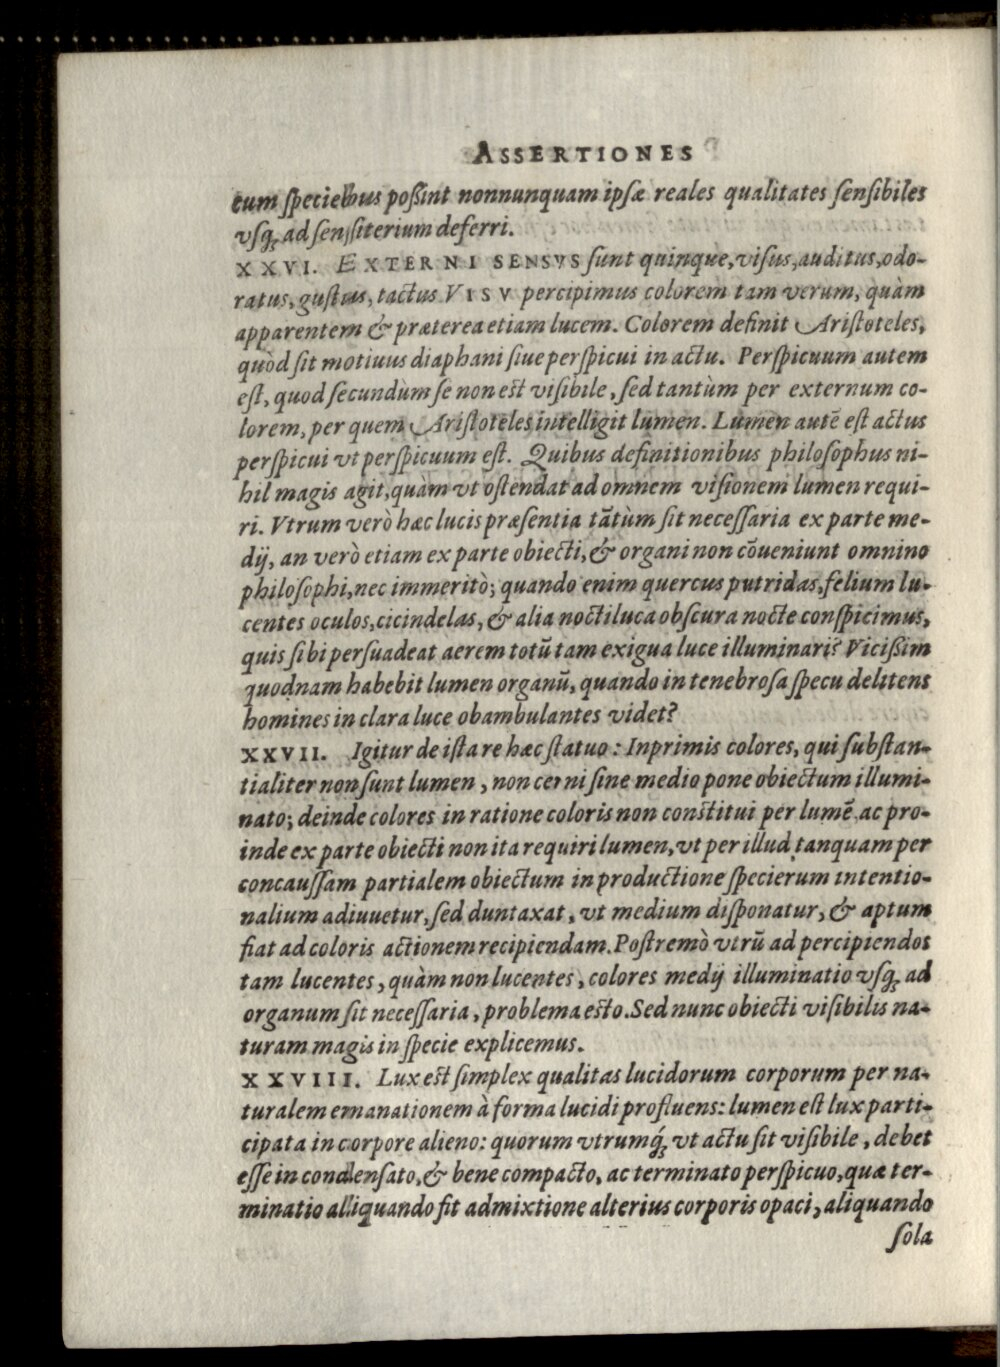 ASSERTIONES
cum speciebus poßint nonnunquam ipsæ reales qualitates sensibiles
vsq; ad sensiterium deferri.
XXVI. EXTERNI SENSVS sunt quinque, visus, auditus, odo-
ratus, gustus, tactus VISV percipimus colorem tam verum, quàm
apparentem & præterea etiam lucem. Colorem definit Aristoteles,
quòd sit motiuus diaphani siue perspicui in actu. Perspicuum autem
est, quod secundùm se non est visibile, sed tantùm per externum co-
lorem, per quem Aristoteles intelligit lumen. Lumen autē est actus
perspicui vt perspicuum est. Quibus definitionibus philosophus ni-
hil magis agit, quàm vt ostendat ad omnem visionem lumen requi-
ri. Vtrum verò hæc lucis præsentia tātùm sit necessaria ex parte me-
dij, an verò etiam ex parte obiecti, & organi non cōueniunt omnino
philosophi, nec immeritò; quando enim quercus putridas, felium lu-
centes oculos, cicindelas, & alia noctiluca obscura nocte conspicimus,
quis sibi persuadeat aerem totū tam exigua luce illuminari? Vicißim
quodnam habebit lumen organū, quando in tenebrosa specu delitens
homines in clara luce obambulantes videt?
XXVII. Igitur de ista re hæc statuo: Inprimis colores, qui substan-
tialiter non sunt lumen, non cerni sine medio pone obiectum illumi-
nato; deinde colores in ratione coloris non constitui per lumē, ac pro-
inde ex parte obiecti non ita requiri lumen, vt per illud, tanquam per
concaussam partialem obiectum in productione specierum intentio-
nalium adiuuetur, sed duntaxat, vt medium disponatur, & aptum
fiat ad coloris actionem recipiendam. Postremò vtrū ad percipiendos
tam lucentes, quàm non lucentes, colores medij illuminatio vsq; ad
organum sit necessaria, problema esto. Sed nunc obiecti visibilis na-
turam magis in specie explicemus.
XXVIII. Lux est simplex qualitas lucidorum corporum per na-
turalem emanationem à forma lucidi profluens: lumen est lux parti-
cipata in corpore alieno: quorum vtrumq́; vt actu sit visibile, debet
esse in condensato, & bene compacto, ac terminato perspicuo, quæ ter-
minatio aliquando fit admixtione alterius corporis opaci, aliquando
sola